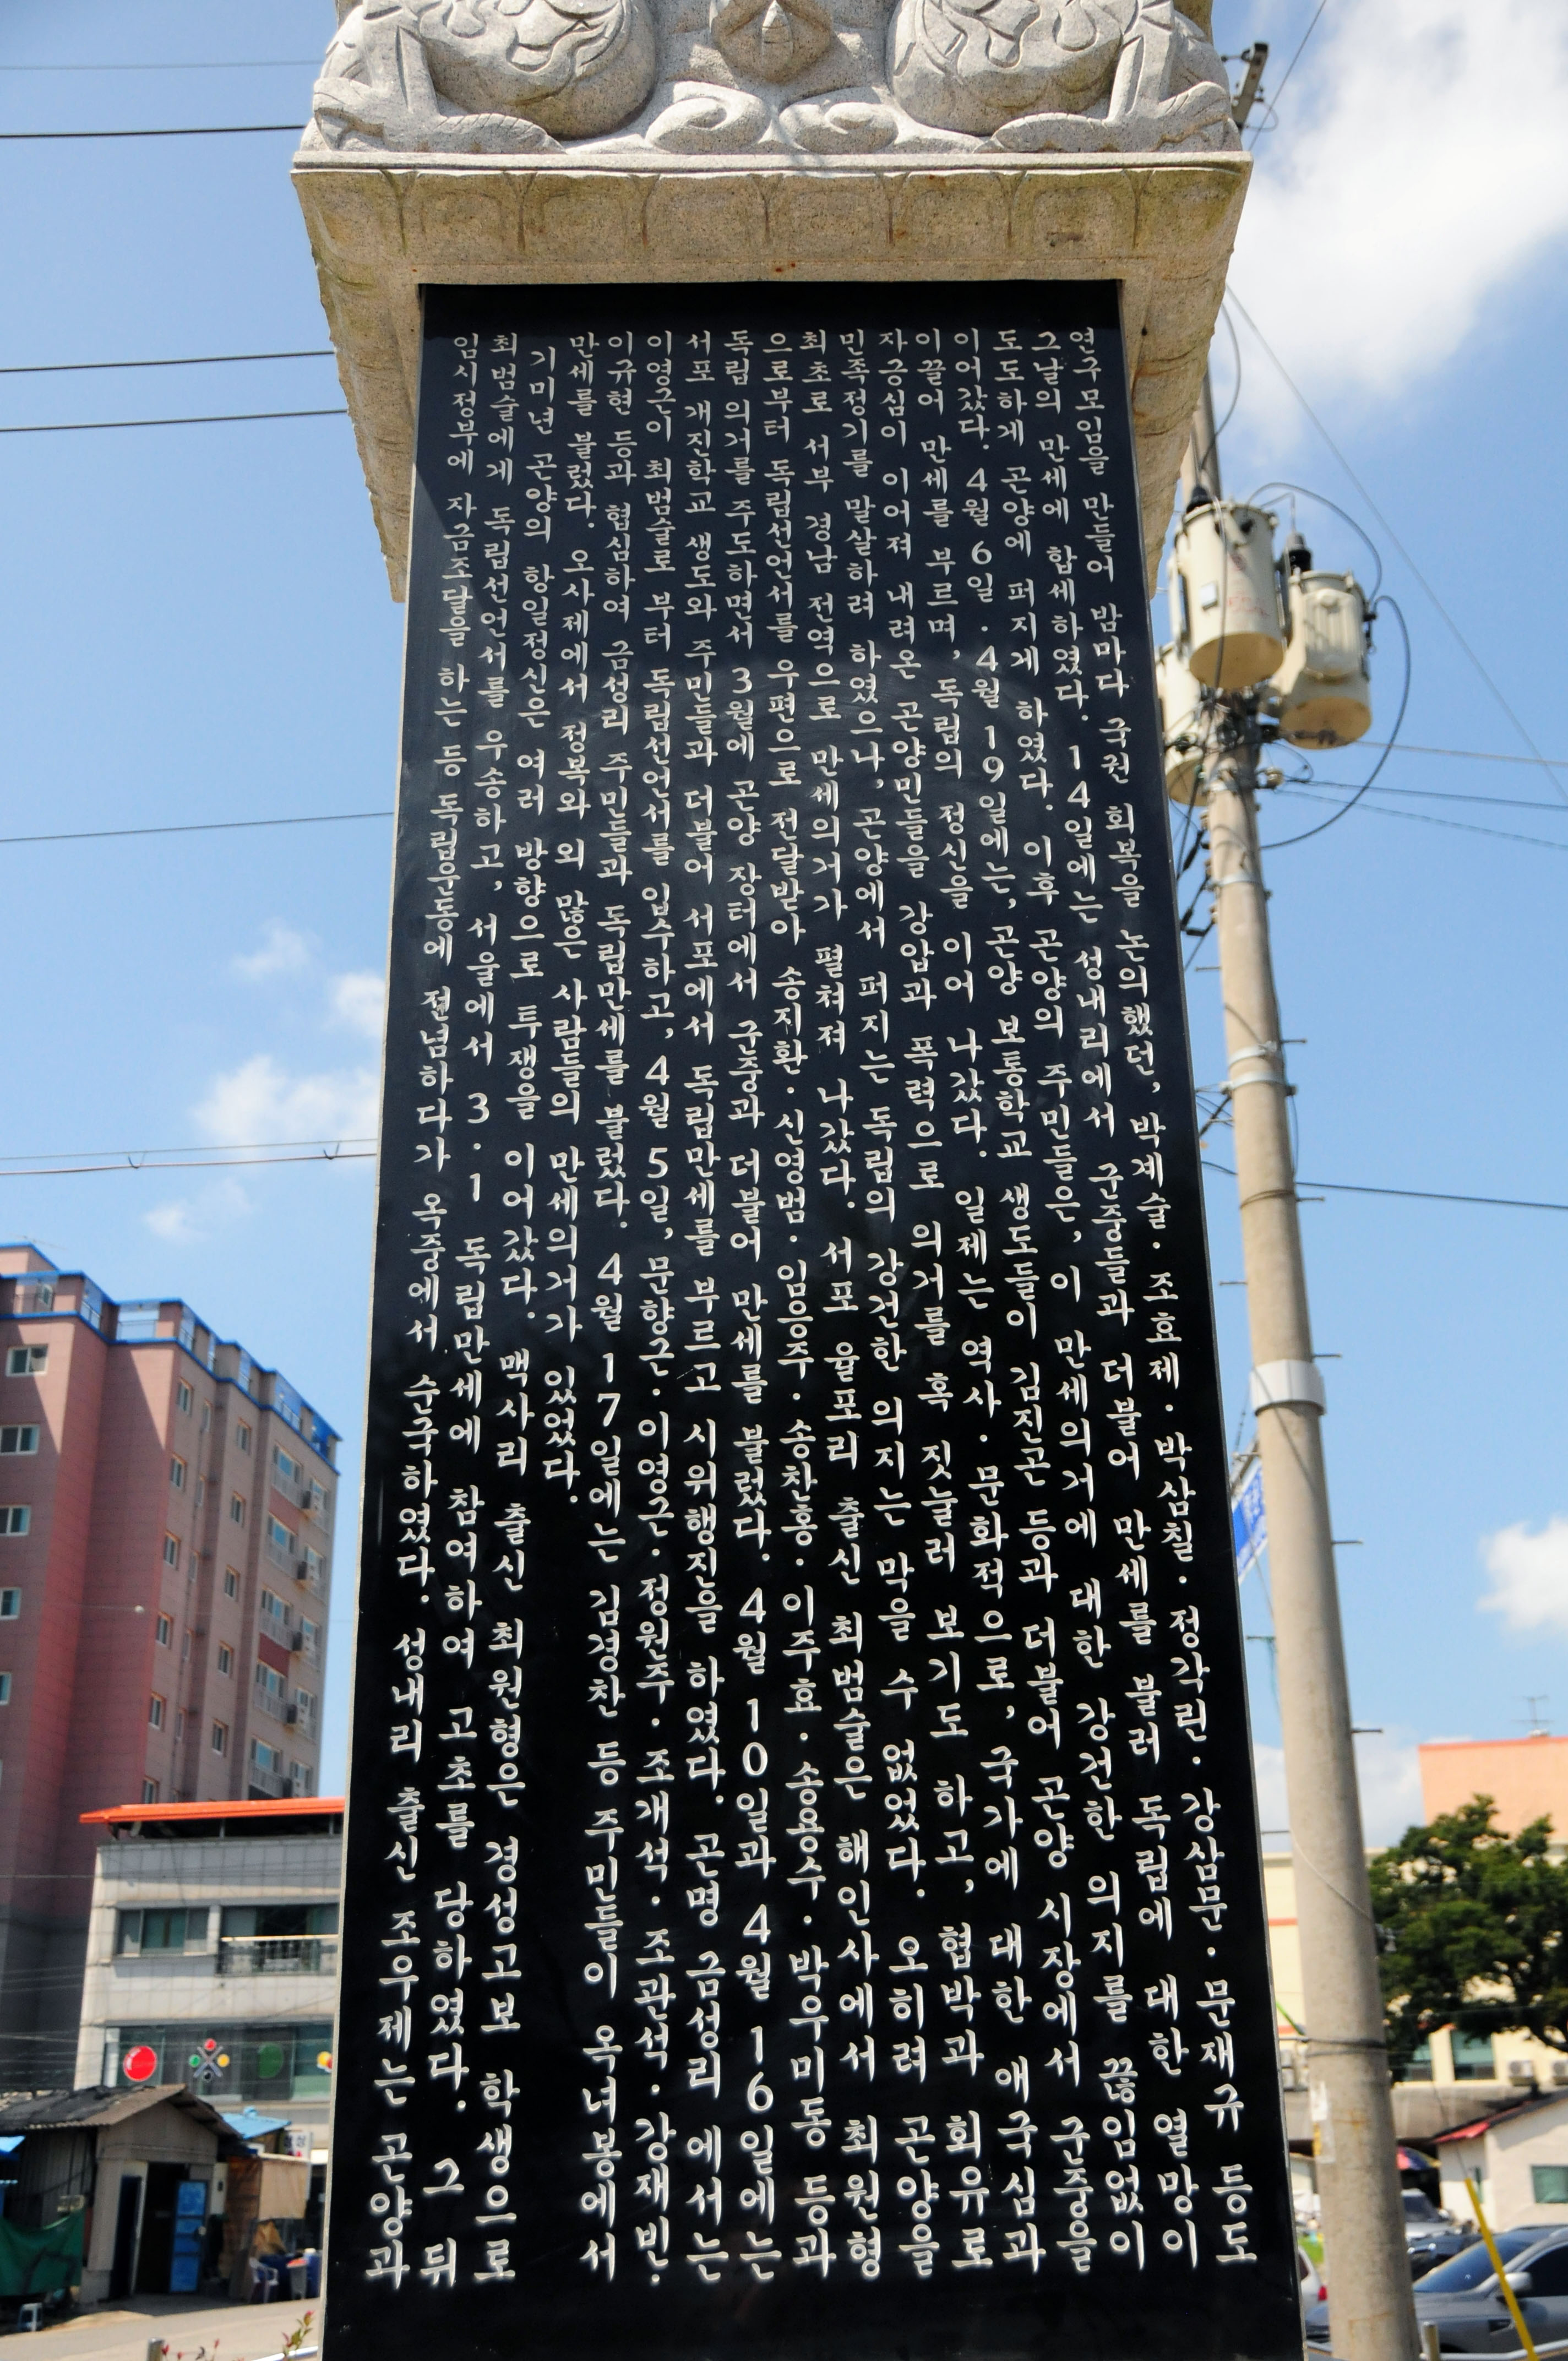 연구모임을 만들어 밤마다 국권 회복을 논의했던, 박계술·조효제·박삼칠·정각린·강삼문·문재규 등도
그날의 만세에 합세하였다. 14일에는 성내리에서 군중들과 더불어 만세를 불러 독립에 대한 열망이
도도하게 곤양에 퍼지게 하였다. 이후 곤양의 주민들은, 이 만세의거에 대한 강건한 의지를 끊임없이
이어갔다. 4월 6일·4월 19일에는, 곤양 보통학교 생도들이 김진곤 등과 더불어 곤양 시장에서 군중을
이끌어 만세를 부르며, 독립의 정신을 이어 나갔다. 일제는 역사·문화적으로, 국가에 대한 애국심과
자긍심이 이어져 내려온 곤양민들을 강압과 폭력으로 의거를 혹 짓눌러 보기도 하고, 협박과 회유로
민족정기를 말살하려 하였으나, 곤양에서 퍼지는 독립의 강건한 의지는 막을 수 없었다. 오히려 곤양을
최초로 서부 경남 전역으로 만세의거가 펼쳐져 나갔다. 서포 율포리 출신 최범술은 해인사에서 최원형
으로부터 독립선언서를 우편으로 전달받아 송지환·신영범·임응주·송찬홍·이주효·송용수·박우미동 등과
독립 의거를 주도하면서 3월에 곤양 장터에서 군중과 더불어 만세를 불렀다. 4월 10일과 4월 16일에는
서포 개진학교 생도와 주민들과 더불어 서포에서 독립만세를 부르고 시위행진을 하였다. 곤명 금성리 에서는
이영근이 최범술로 부터 독립선언서를 입수하고, 4월 5일, 문향근·이영근·정원주·조개석·조관석·강재빈·
이규현 등과 협심하여 금성리 주민들과 독립만세를 불렀다. 4월 17일에는 김경찬 등 주민들이 옥녀봉에서
만세를 불렀다. 오사제에서 정복와 외 많은 사람들의 만세의거가 있었다.
기미년 곤양의 항일정신은 여러 방향으로 투쟁을 이어갔다. 맥사리 출신 최원형은 경성고보 학생으로
최범술에게 독립선언서를 우송하고, 서울에서 3·1 독립만세에 참여하여 고초를 당하였다. 그 뒤
임시정부에 자금조달을 하는 등 독립운동에 전념하다가 옥중에서 순국하였다. 성내리 출신 조우제는 곤양과